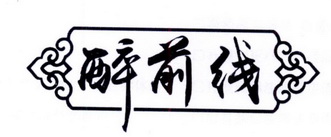 醉前线